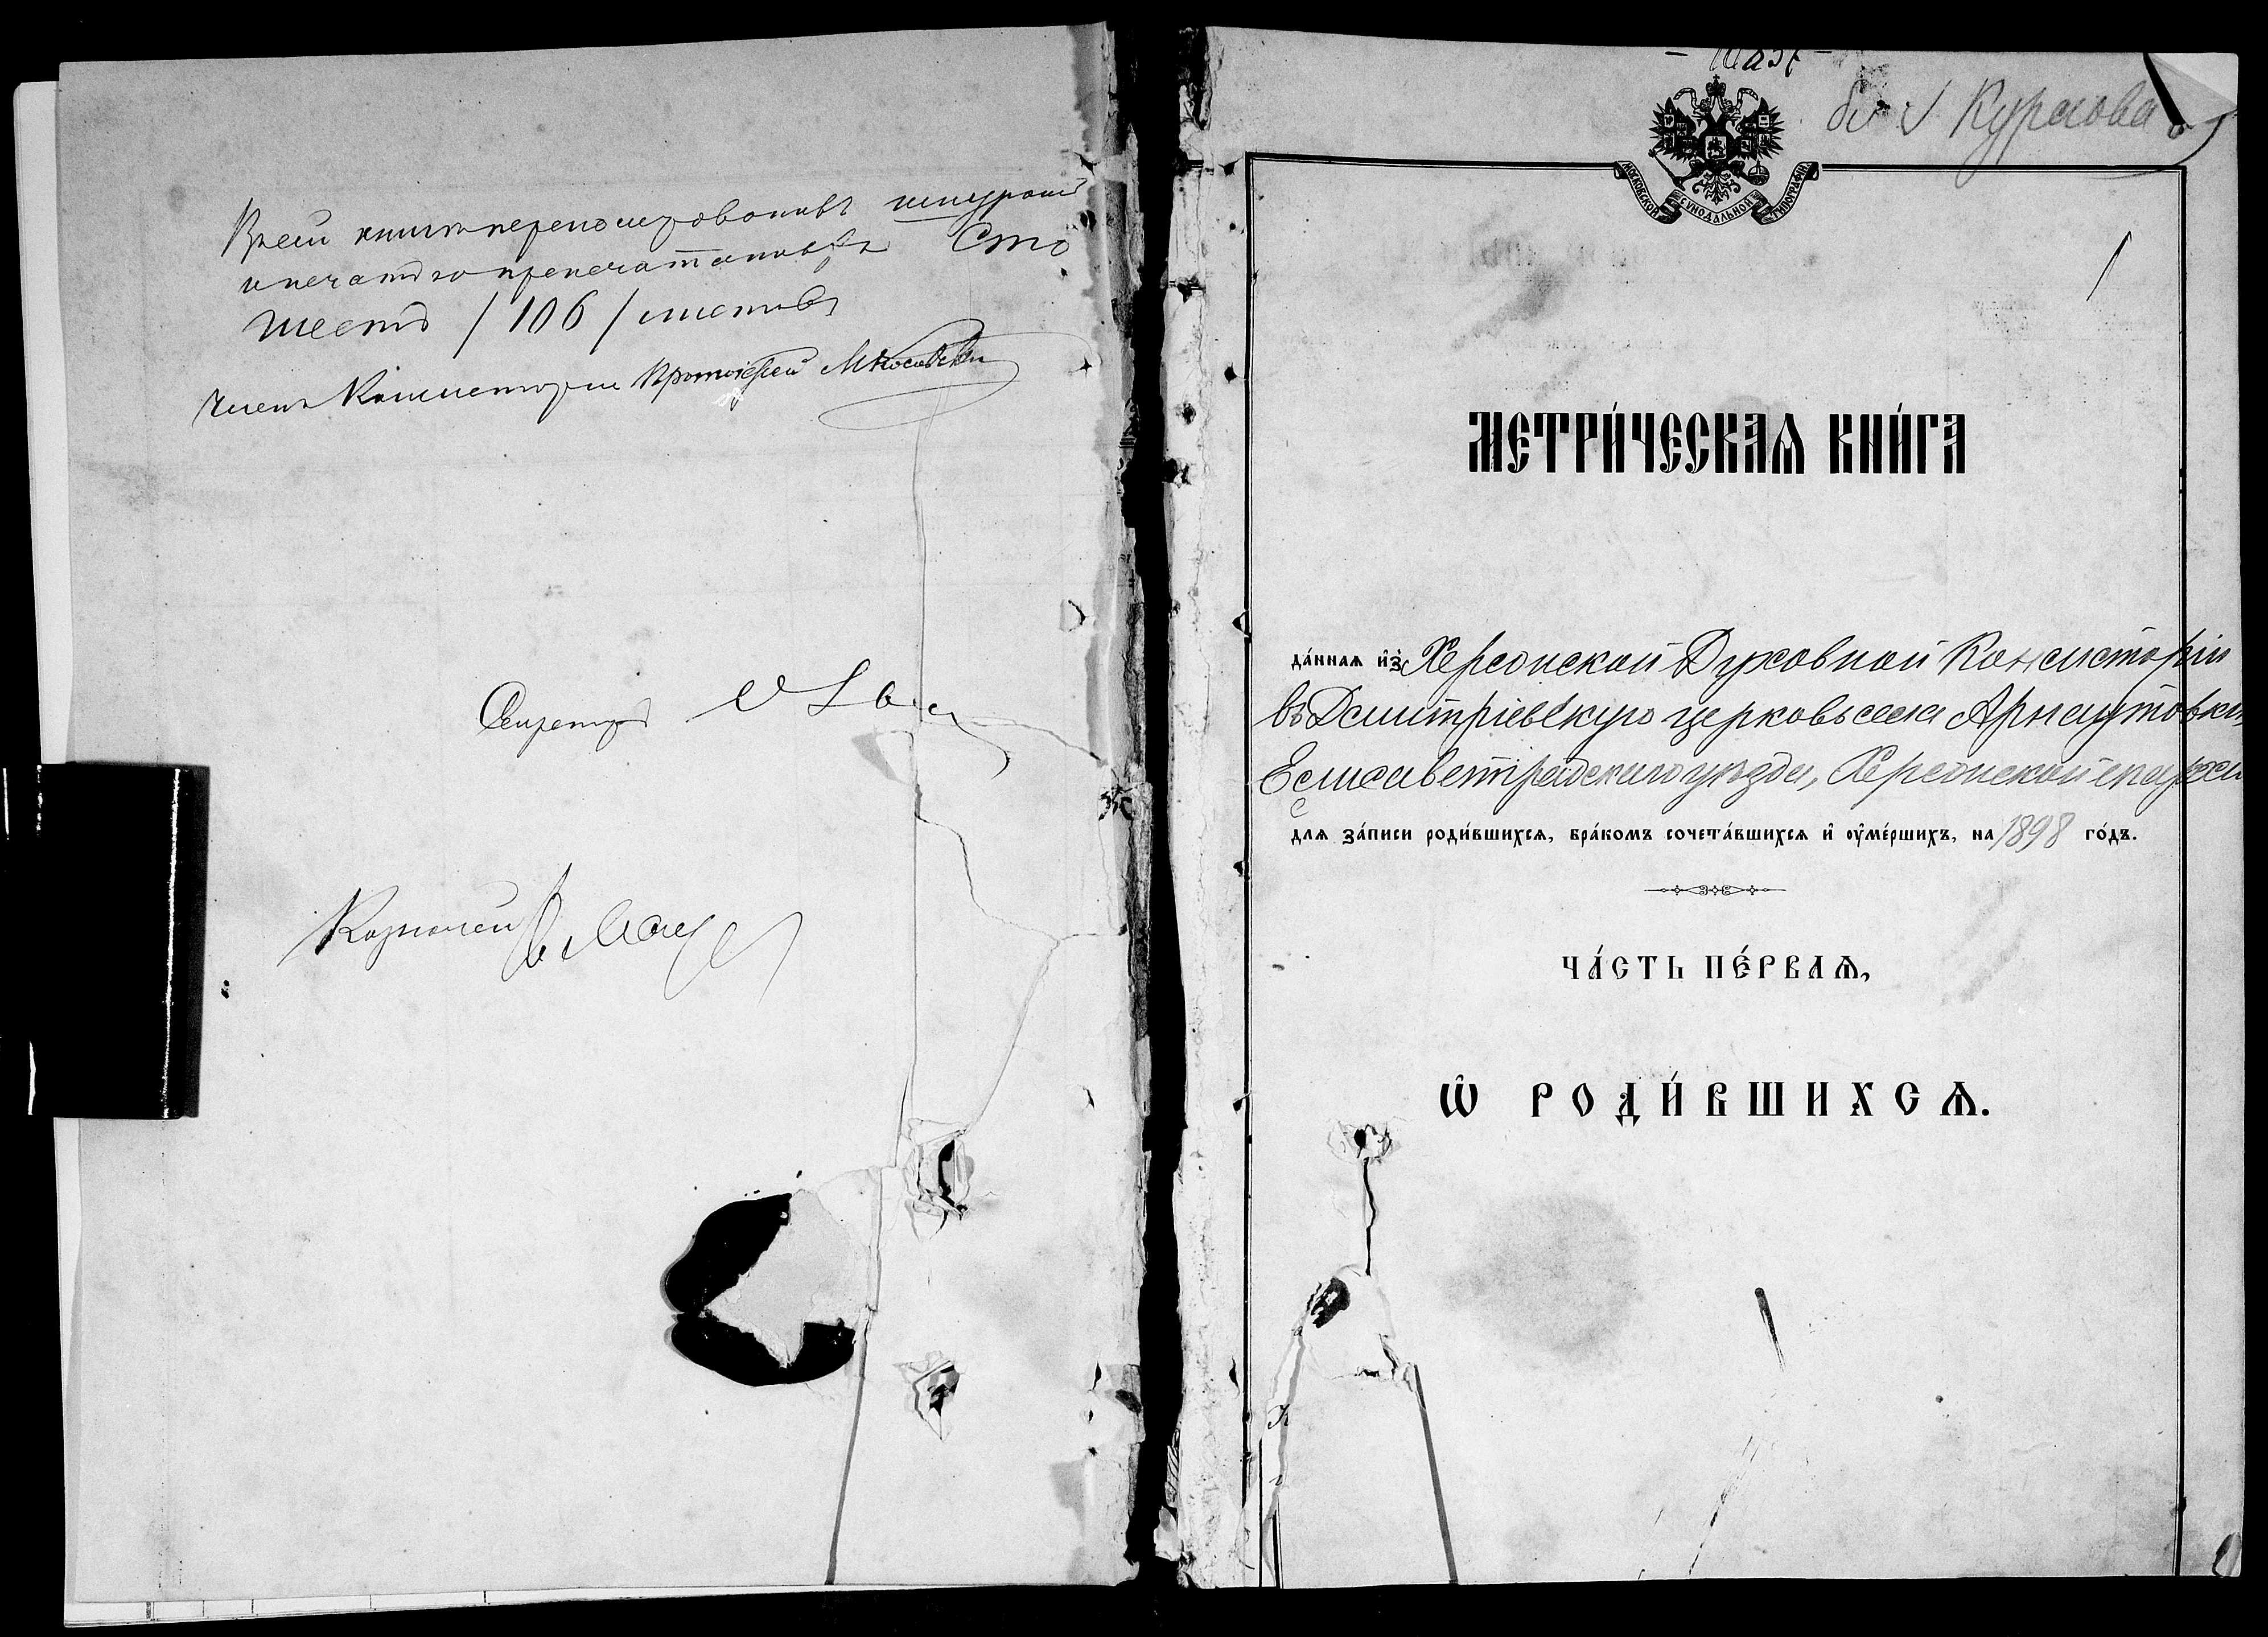 Всей книги перенумерованныхъ шнуромъ
и печатью припечатанныхъ Сто
шесть /106/ листовъ
Членъ Консисторіи Протоіерей
Секретарь
Казначей
МОСКОВСКОЙ СѴНОДАЛЬНОЙ ТИПОГРАФІИ
1
МЕТРИ́ЧЕСКАѦ КНИ́ГА
да́ннаѧ и҆з̾ Херсонской Духовной Консисторіи
въ Дмитріевскую церковь села Арнаутовки,
Елисаветградскаго уѣзда, Херсонской епархіи
длѧ за́писи роди́вшихсѧ, бра́комъ сочета́вшихсѧ и҆ ᲂу҆ме́ршихъ, на 1898 го́дъ.
ЧА́СТЬ ПЕ́РВАѦ,
Ѽ РОДИ́ВШИХСѦ.